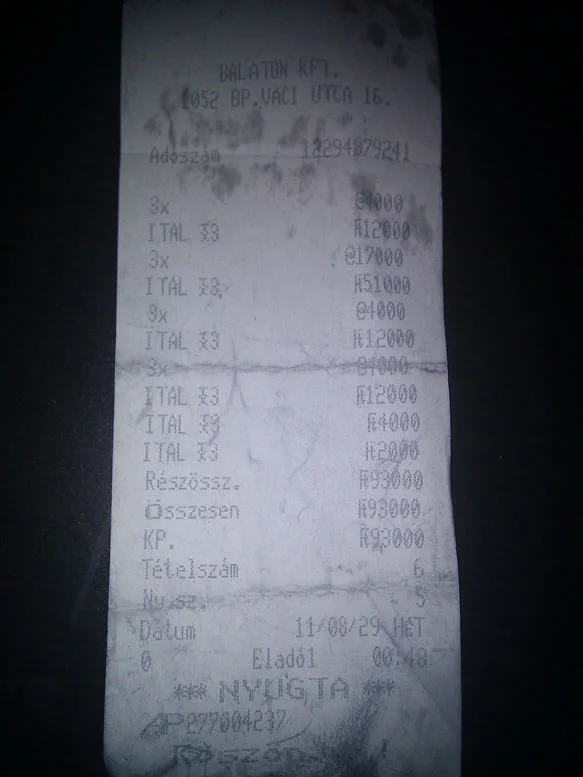 BALATON KFT.
1052 BP.VACI UTCA 16.
Adószám 12294879241
3x @4000
ITAL %3 Ft12000
3x @17000
ITAL %3 Ft51000
3x @4000
ITAL %3 Ft12000
3x @4000
ITAL %3 Ft12000
ITAL %3 Ft4000
ITAL %3 Ft2000
Részössz. Ft93000
Összesen Ft93000
KP. Ft93000
Tételszám 6
Ny.sz. 5
Dátum 11/08/29 HÉT
0 Eladó1 00:48
*** NYUGTA ***
AP277004237